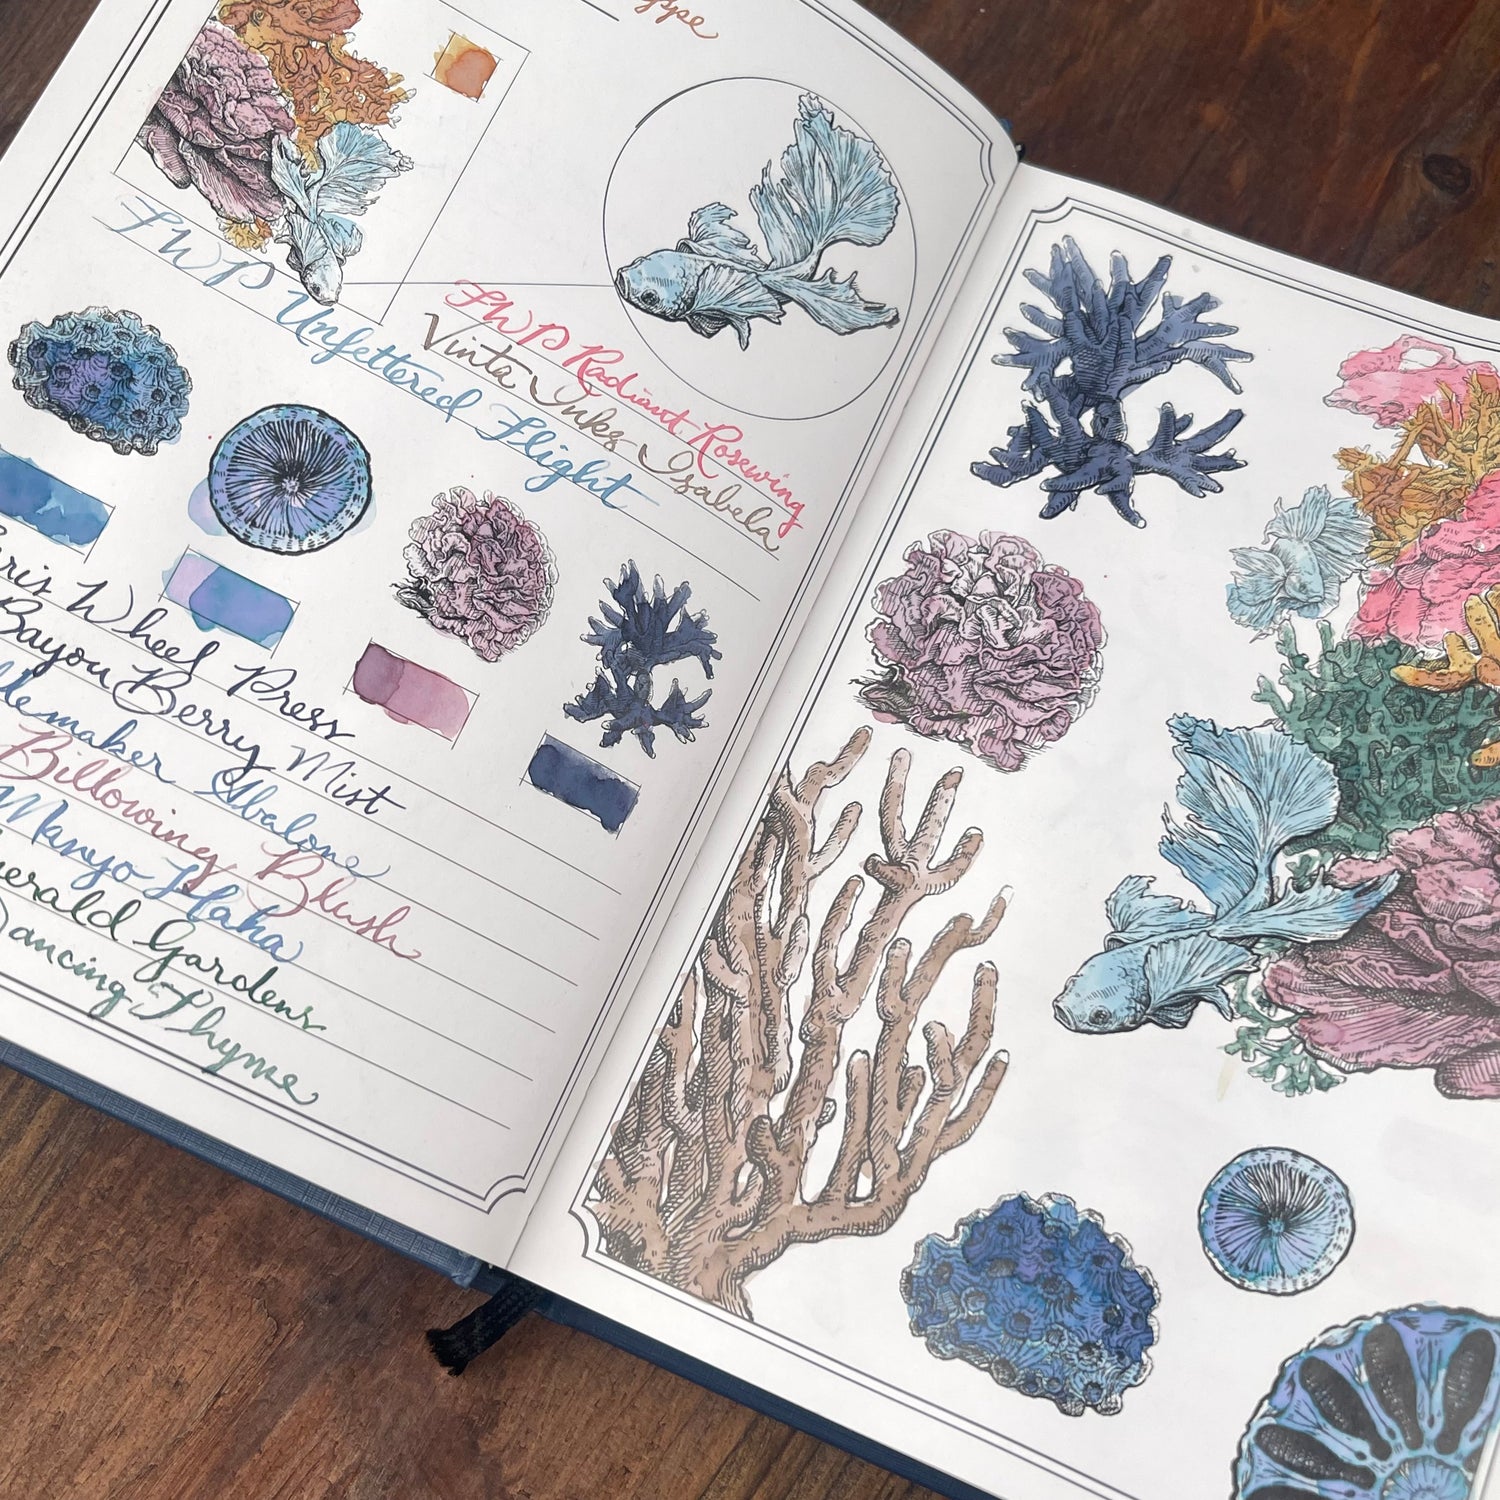 FWP Unfettered Flight
FWP Radiant Rosewing
Vinta Inks Isabela
Wheel Press
Bayou Berry Mist
Abalone
Billowing Blush
Manyo Haha
Gardens
Dancing Thyme